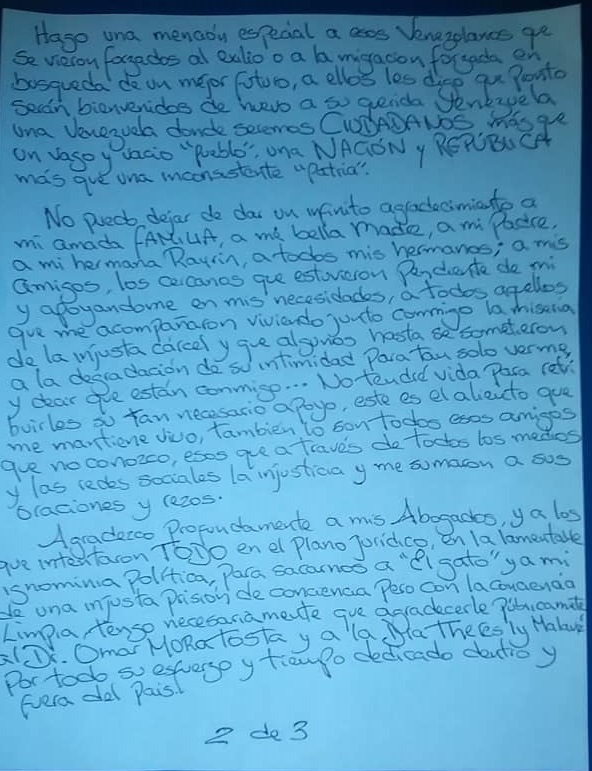 Hago una mención especial a esos Venezolanos que
se vieron forzados al exilio o a la migracion forzada en
busqueda de un mejor futuro, a ellos les digo que Pronto
Serán bienvenidos de nuevo a su querida Venezuela
una Venezuela donde seremos CIUDADANOS más que
un vago y vacio "pueblo", una NACIÓN y REPÚBLICA
más que una inconsistente "patria".
No puedo dejar de dar un infinito agradecimiento a
mi amada FAMILIA, a mi bella Madre, a mi Padre,
a mi hermana Rayrin, a todos mis hermanos; a mis
amigos, los cercanos que estuvieron Pendiente de mi
y apoyandome en mis necesidades, a todos aquellos
que me acompañaron viviendo junto conmigo la miseria
de la injusta cárcel y que algunos hasta se sometieron
a la degradación de su intimidad Para tan solo verme,
y decir que están conmigo... No tendré vida Para retri
buirles su tan necesario apoyo, este es el aliento que
me mantiene vivo, también lo son todos esos amigos
que no conozco, esos que a través de todos los medios
y las redes sociales la injusticia y me sumaron a sus
oraciones y rezos.
Agradezco Profundamente a mis Abogados, y a los
que intentaron TODO en el Plano Jurídico, en la lamentable
ignominia Política, Para sacarnos a "el gato" y a mi
de una injusta Prisión de conciencia Pero con la conciencia
Limpia, tengo necesariamente que agradecerle Públicamente
al Dr. Omar MORA TOSTA y a la Dra Theresly Malavé
Por todo su esfuerzo y tiempo dedicado dentro y
fuera del País.
2 de 3